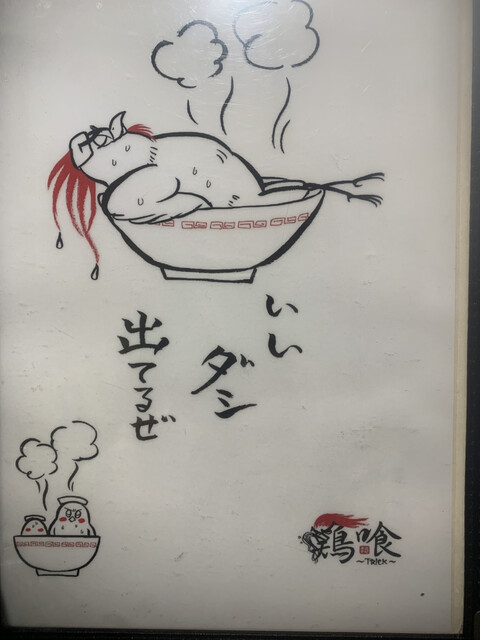 いい
ダシ
出てるぜ
鶏喰
~TRICK~